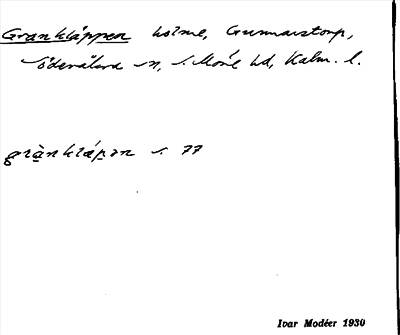 Grankläppen holme, Gunnarstorp,
Söderåkra sn, S. Möre hd, Kalm. l.
grànklápən s. 77
Ivar Modéer 1930